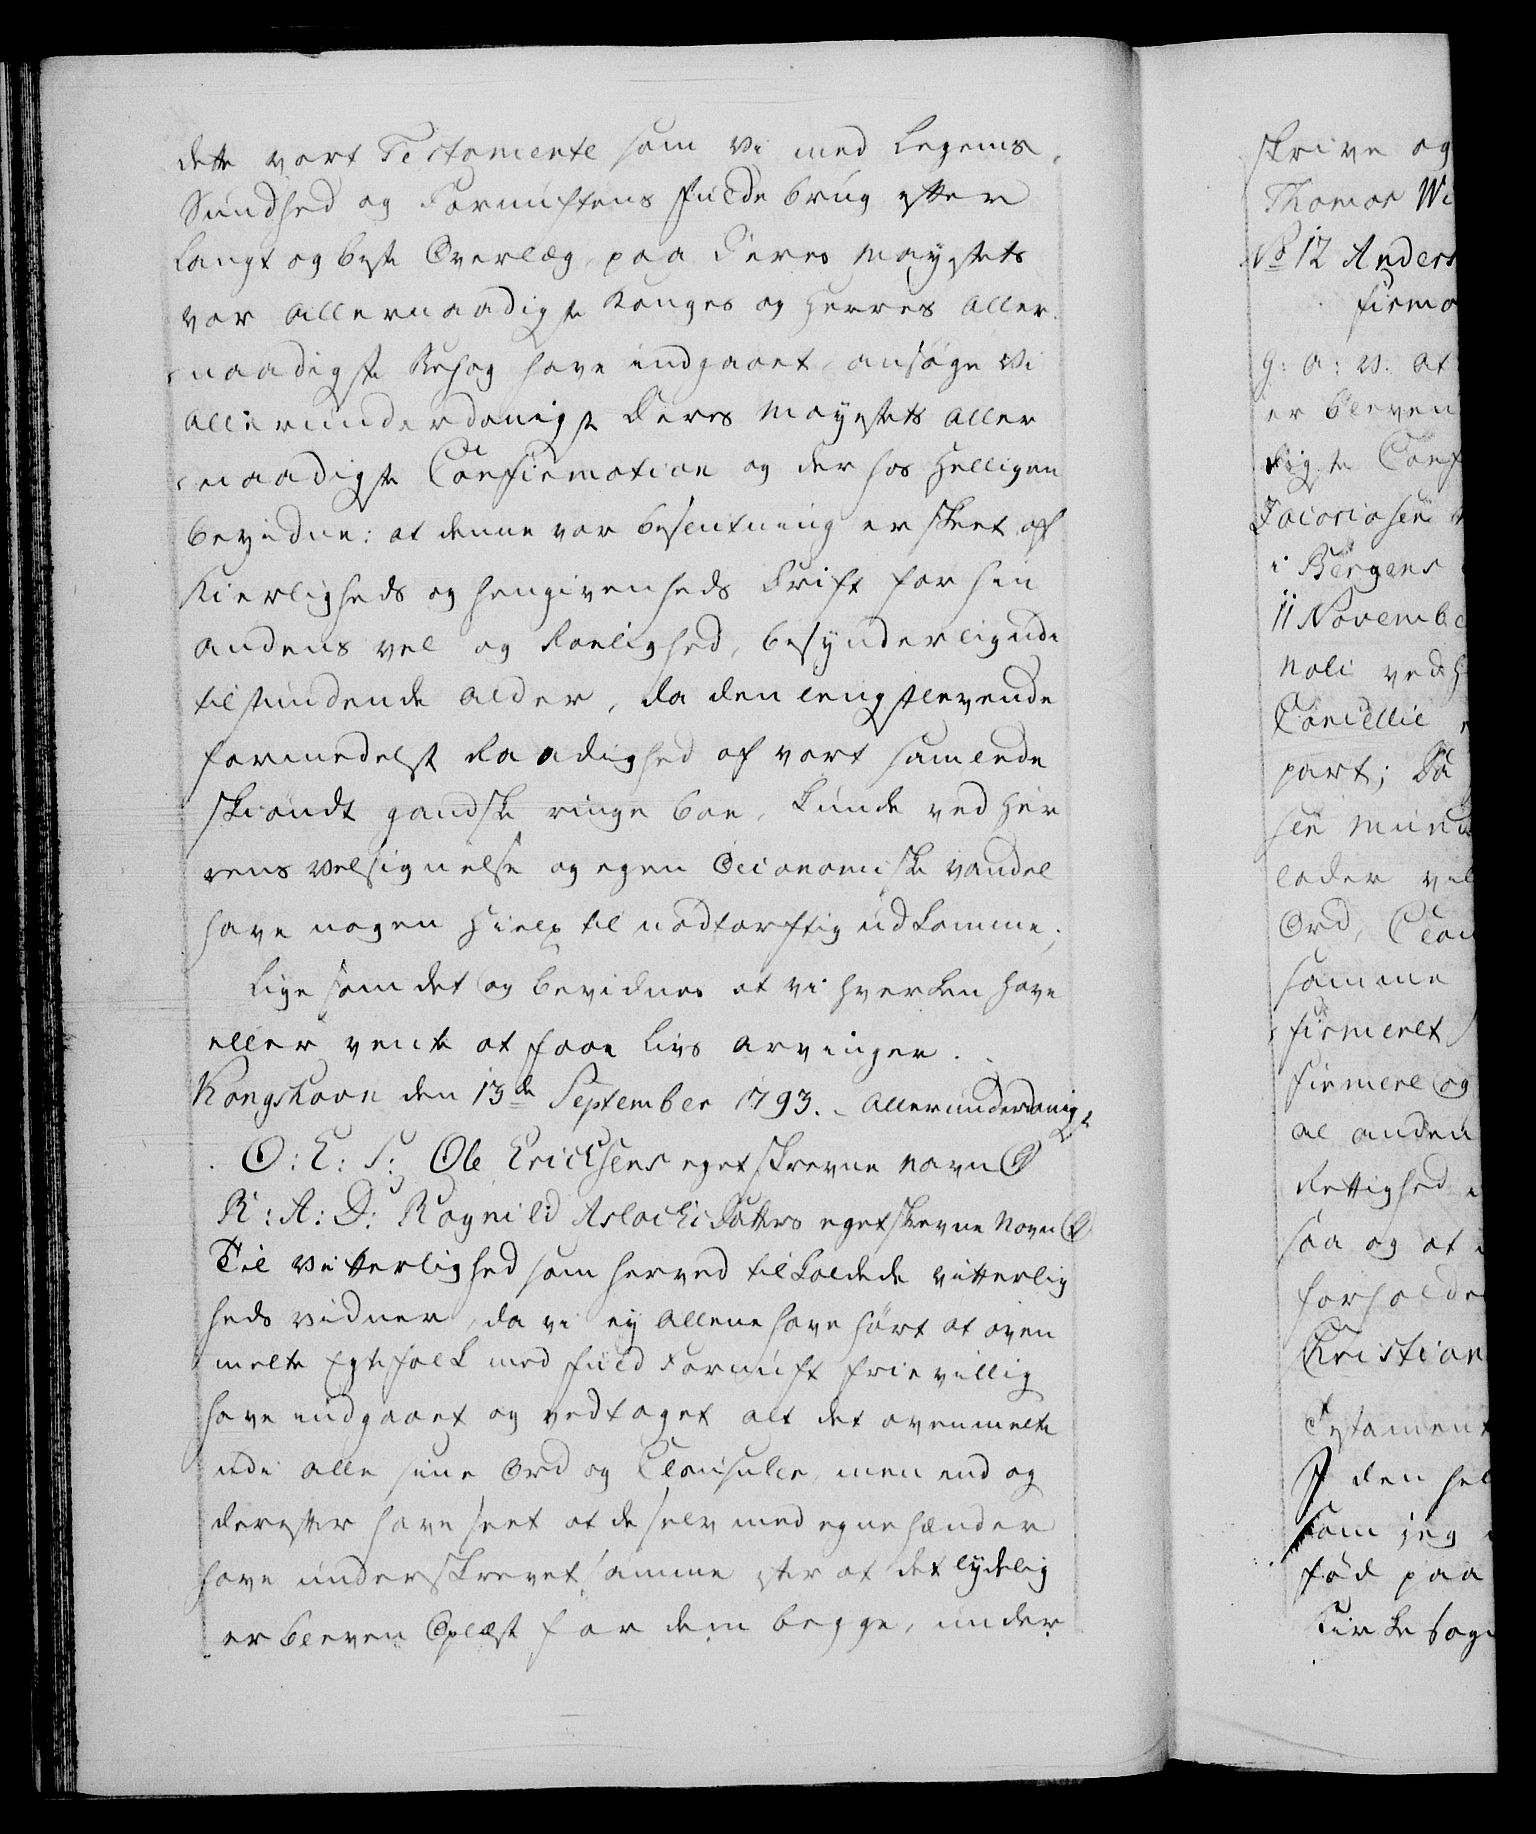 dette vort Testamente som vi med Legems
Sundhed og Fornuftens fulde brug efter
langt og beste Overlæg, paa Deres Mayestets
vor Allernaadigste Konges og Herres Aller
naadigste Behag have indgaaet, ansøge vi
allerunderdanigst Deres Mayestets Aller
naadigste Confirmation og derhos helligen
bevidne: at denne vor beslutning er skeet af
Kierligheds og hengivenheds Drift for hin
andens vel og Roelighed, besynderlig udi
tilstundende alder, da den lengstlevende
formedelst Raadighed af vort samlede
skiøndt gandske ringe boe, kunde ved Her
rens velsignelse og egen Oeconomiske vandel
have nogen Hielp til nødtørftig udkomme;
Lige som det og bevidnes at vi hverken have
eller vente at faae Livs arvinger.
Kongshavn den 13de September 1793. Allerunderdanigst
O: E: S: Ole Ericksens eget skrevne navn
R: A: D: Ragnild Aslachs Datters eget skrevne Navn
Til Vitterlighed som herved tilkaldede vitterlig
heds vidner, da vi ey allene have hørt at oven
melte Egtefolk med fuld Fornuft frievillig
have indgaaet og vedtaget alt det ovenmelte
udi alle sine Ord og Clausuler, men end og
derefter have seet at de selv med egne hænder
have underskrevet samme efter at det lydelig
er bleven Oplæst for dem begge, under
skrive og
Thomas
No 12 Anders
firma
G: a: v: at
er bleven
digste Conf
i Bergens
11 November
Noli ved
Cancellie
part; Da
sen
lader vel
Ord, Clau
samme
firmeret
firmere og
al anden
Rettighed
saa og at
forholde
Christian
Testament
I den hel
Som jeg
fød paa
Kirkesogn